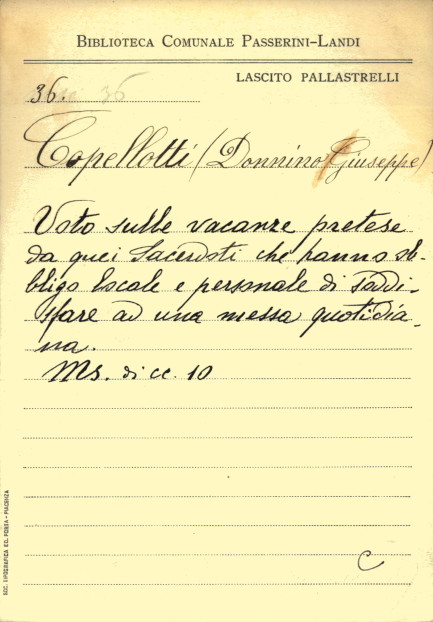 BIBLIOTECA COMUNALE PASSERINI-LANDI
LASCITO PALLASTRELLI
36. 36
Copellotti (Donnino Giuseppe)
Voto sulle vacanze pretese
da quei Sacerdoti che hanno ob-
bligo locale e personale di soddi-
sfare ad una messa quotidia-
na.
Ms. di cc. 10
C
SOC. TIPOGRAFICA ED. PORTA - PIACENZA